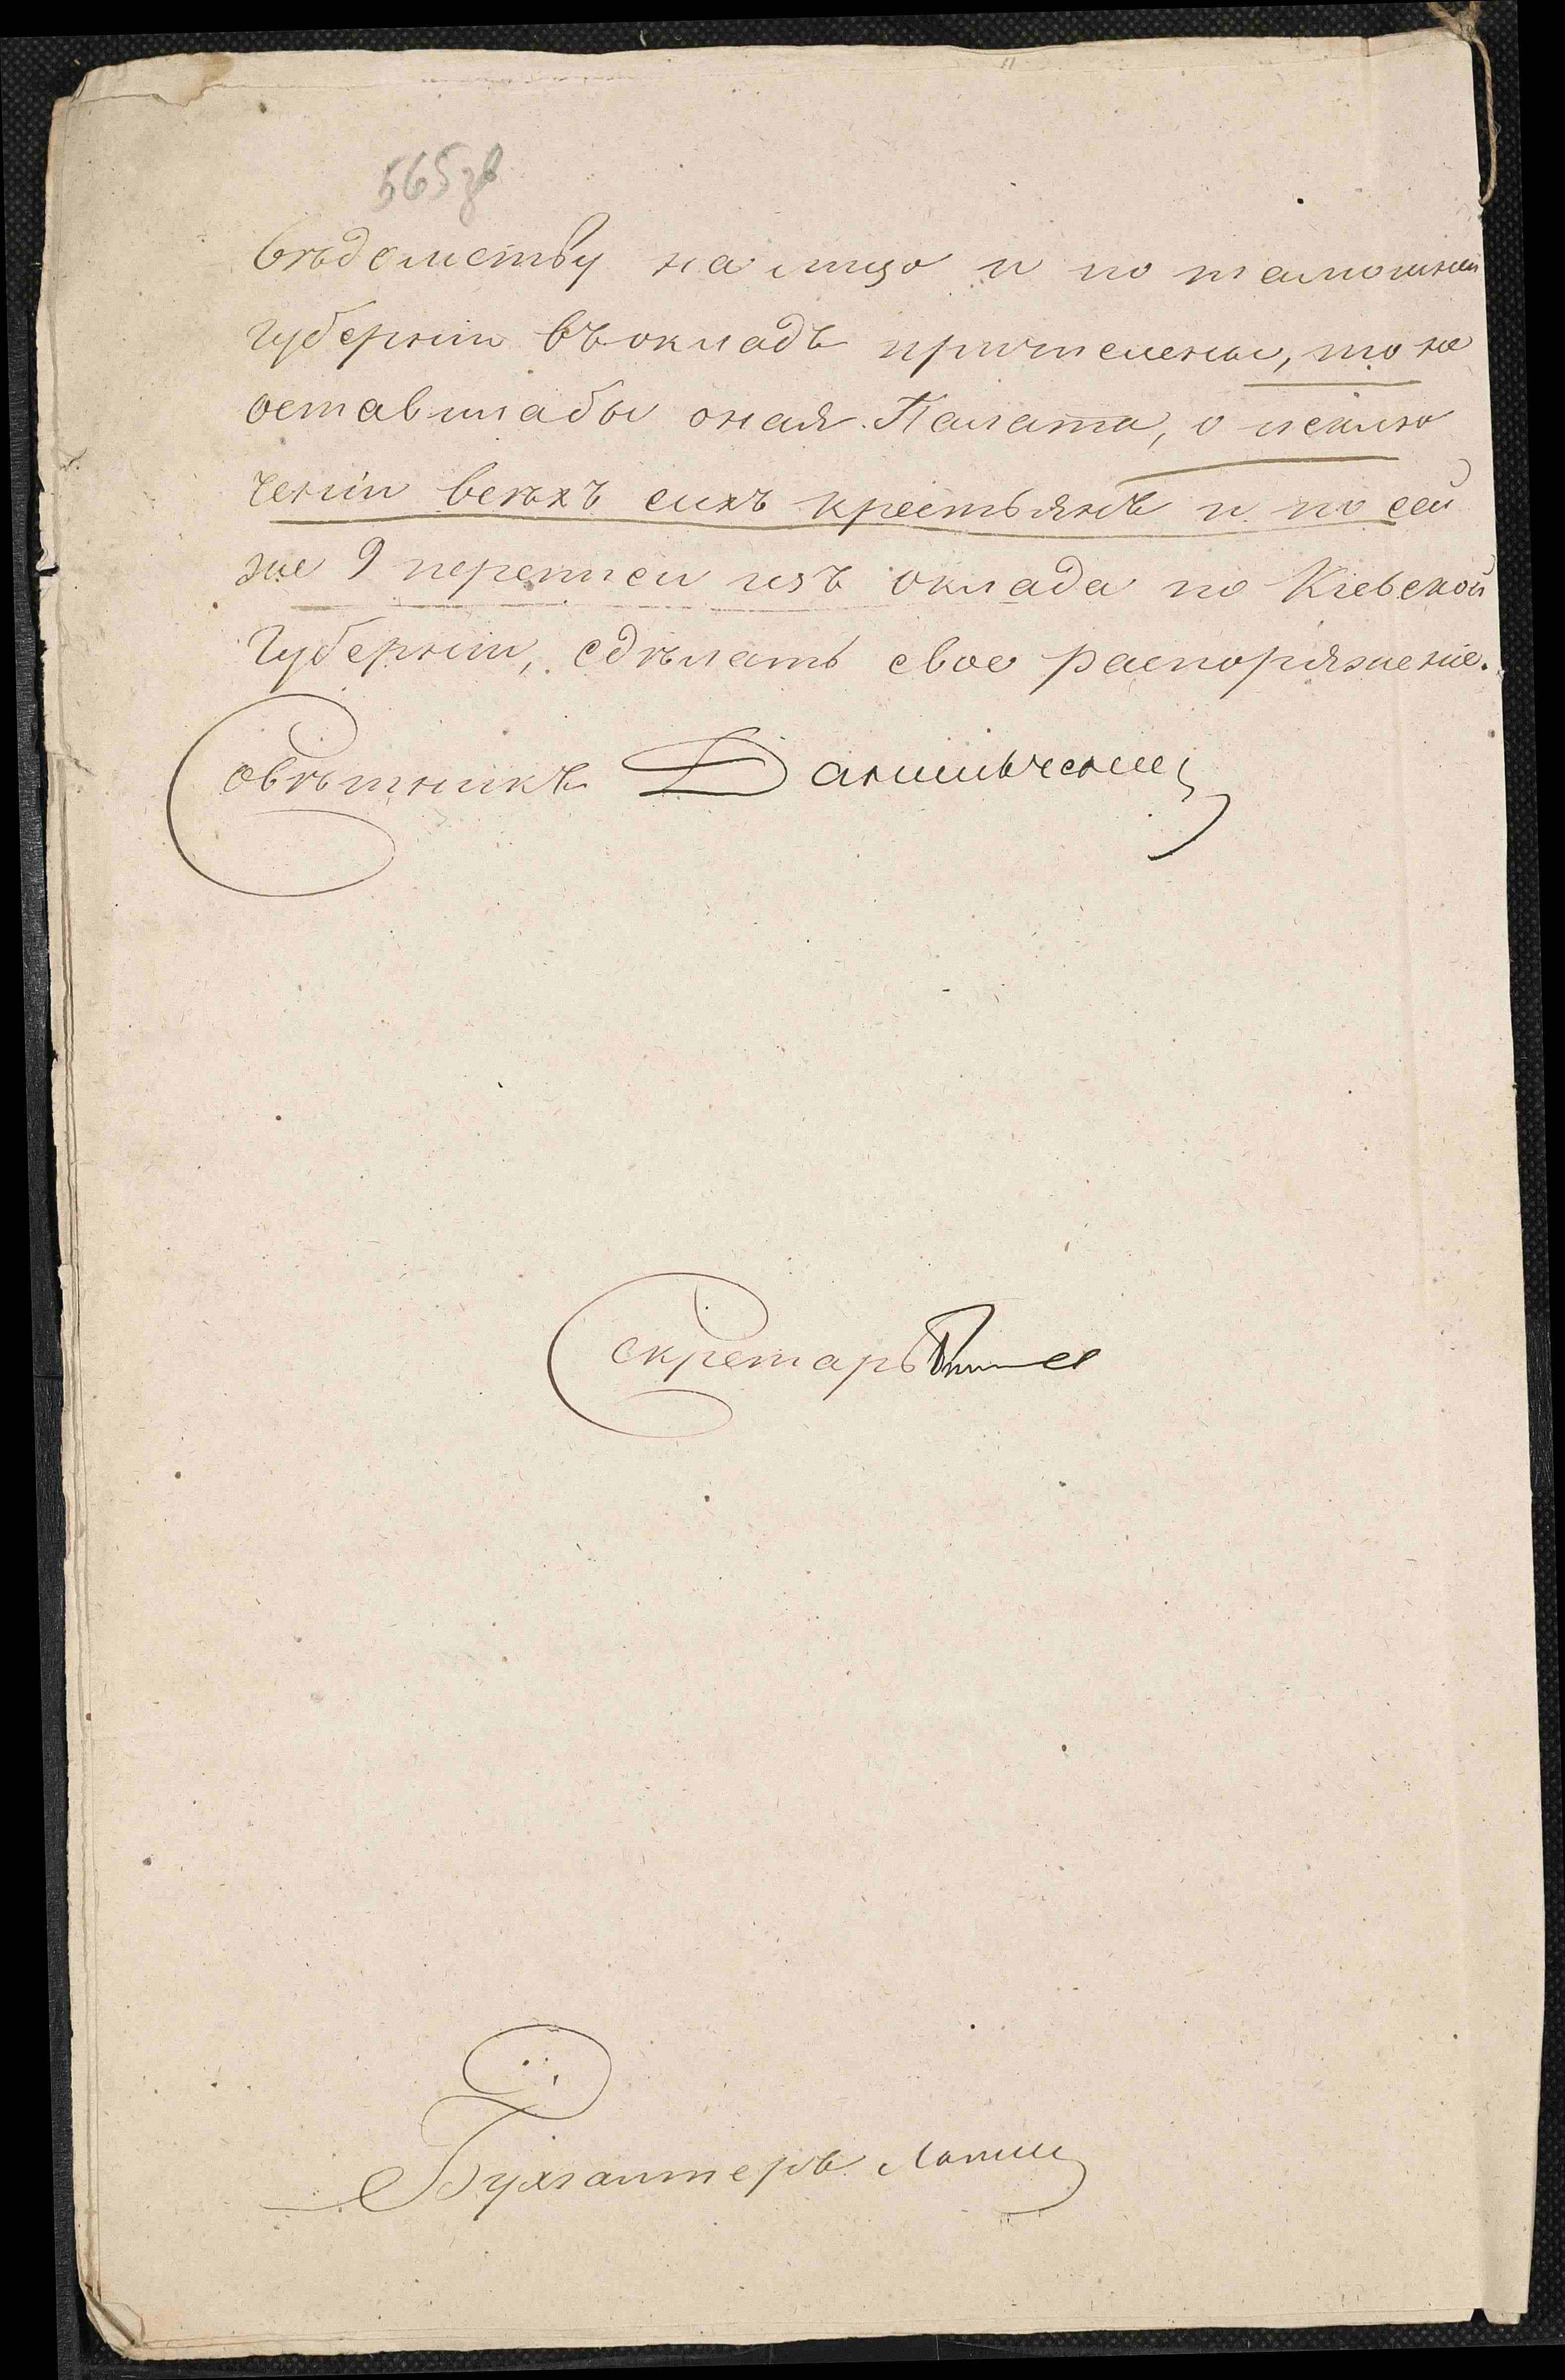 565 зв
вѣдомству на лицо и по тамошней
губерніи въ окладъ причислены, то не
оставилабы оная Палата, о исклю
ченіи всѣхъ сихъ крестьянъ и по сей
же 9 переписи изъ оклада по Кіевской
губерніи, сдѣлать свое распоряженіе.
Совѣтникъ
Секретарь
Бухгалтеръ